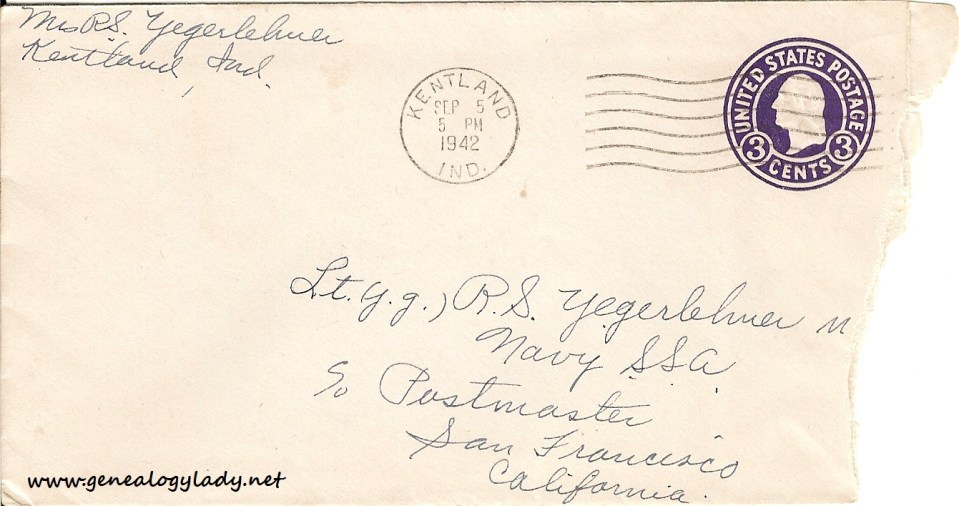 Mrs R.S. Yegerlehner
Kentland, Ind.
KENTLAND
SEP 5
5 PM
1942
IND.
UNITED STATES POSTAGE
3 CENTS 3
Lt. (j.g.) R.S. Yegerlehner M
Navy SSA
c/o Postmaster
San Francisco
California.
www.genealogylady.net